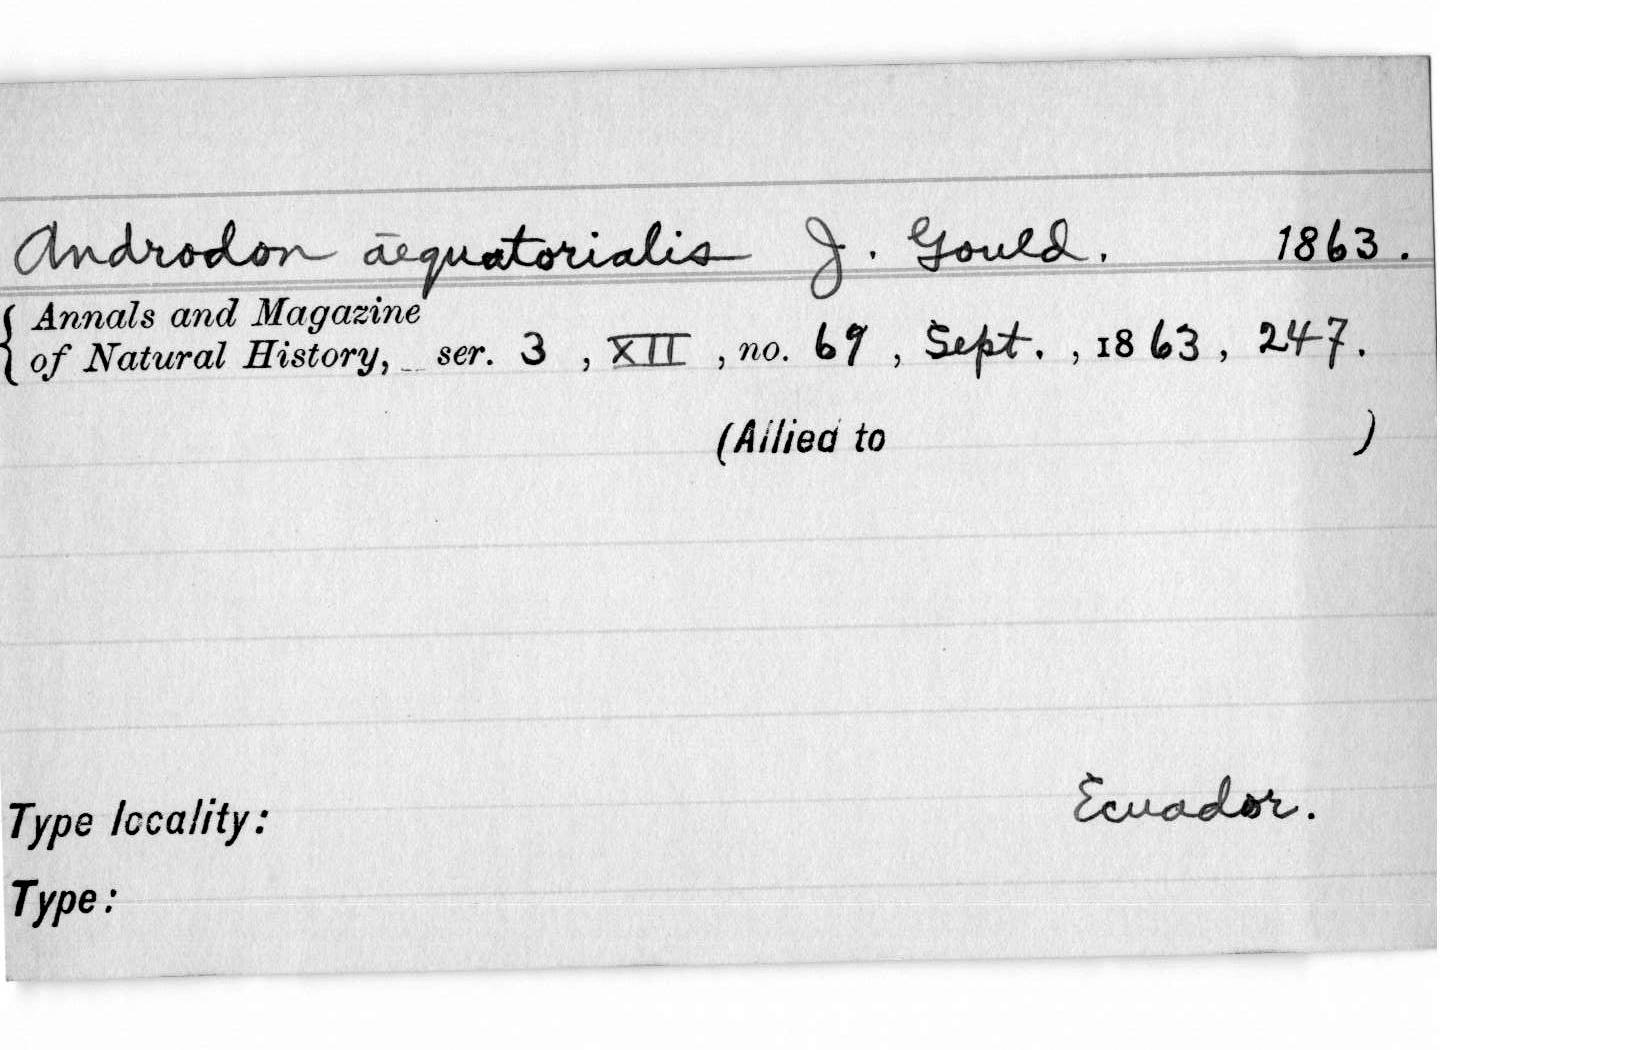 Androdon aequatorialis J. Gould. 1863.
{ Annals and Magazine
of Natural History, ser. 3, XII, no. 69, Sept., 1863, 247.
(Allied to )
Type locality: Ecuador.
Type: